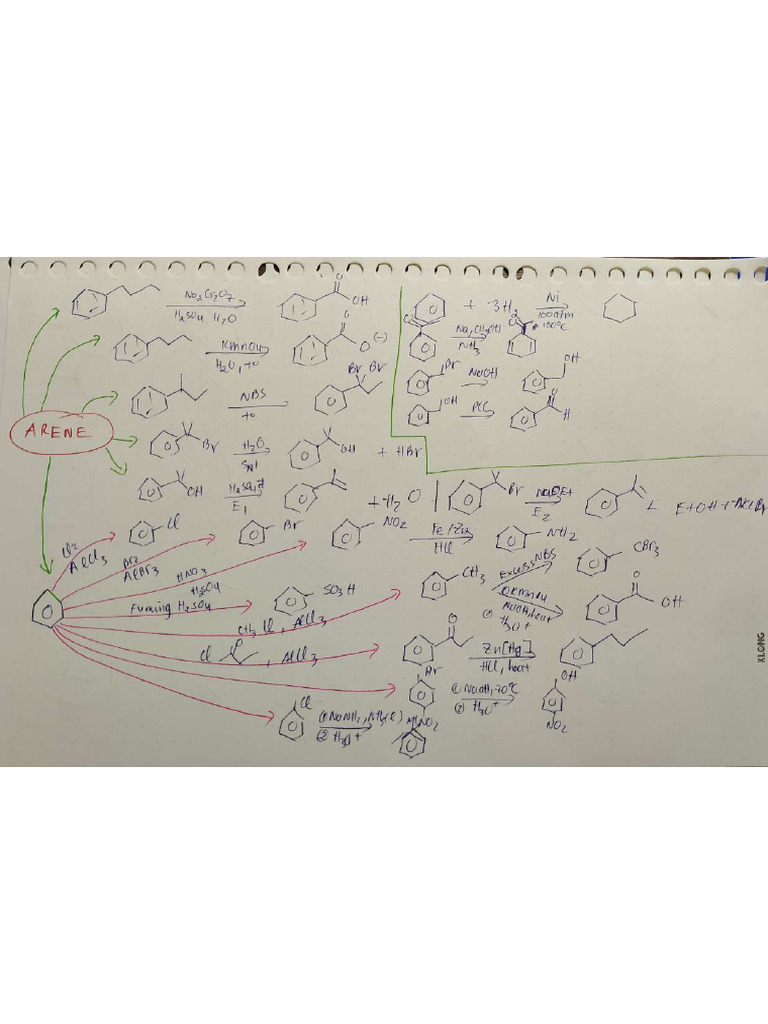 Na2Cr2O7
H2SO4 H2O
O
OH
KMnO4
H2O, to
O
O (-)
NBS
to
Br Br
ARENE
Br
H2O
SN1
OH
+ HBr
OH
H2SO4
E1
+ H2O
Br
NaOEt
E2
+ EtOH + NaBr
+ 3H2
Ni
100atm
150°C
O
Na, CH3OH
NH3
O
Br
NaOH
OH
OH
PCC
O
H
Cl2
AlCl3
Cl
Br2
AlBr3
Br
HNO3
H2SO4
NO2
Fe/Zn
HCl
NH2
Fuming H2SO4
SO3H
CH3Cl, AlCl3
CH3
Excess NBS
CBr3
① KMnO4
NaOH, heat
② H3O+
O
OH
Cl
O
, AlCl3
O
Zn[Hg]
HCl, heat
Br
NO2
① NaOH, 70°C
② H3O+
OH
NO2
Cl
① NaNH2, NH3(l)
② H3O+
NH2
XLONG